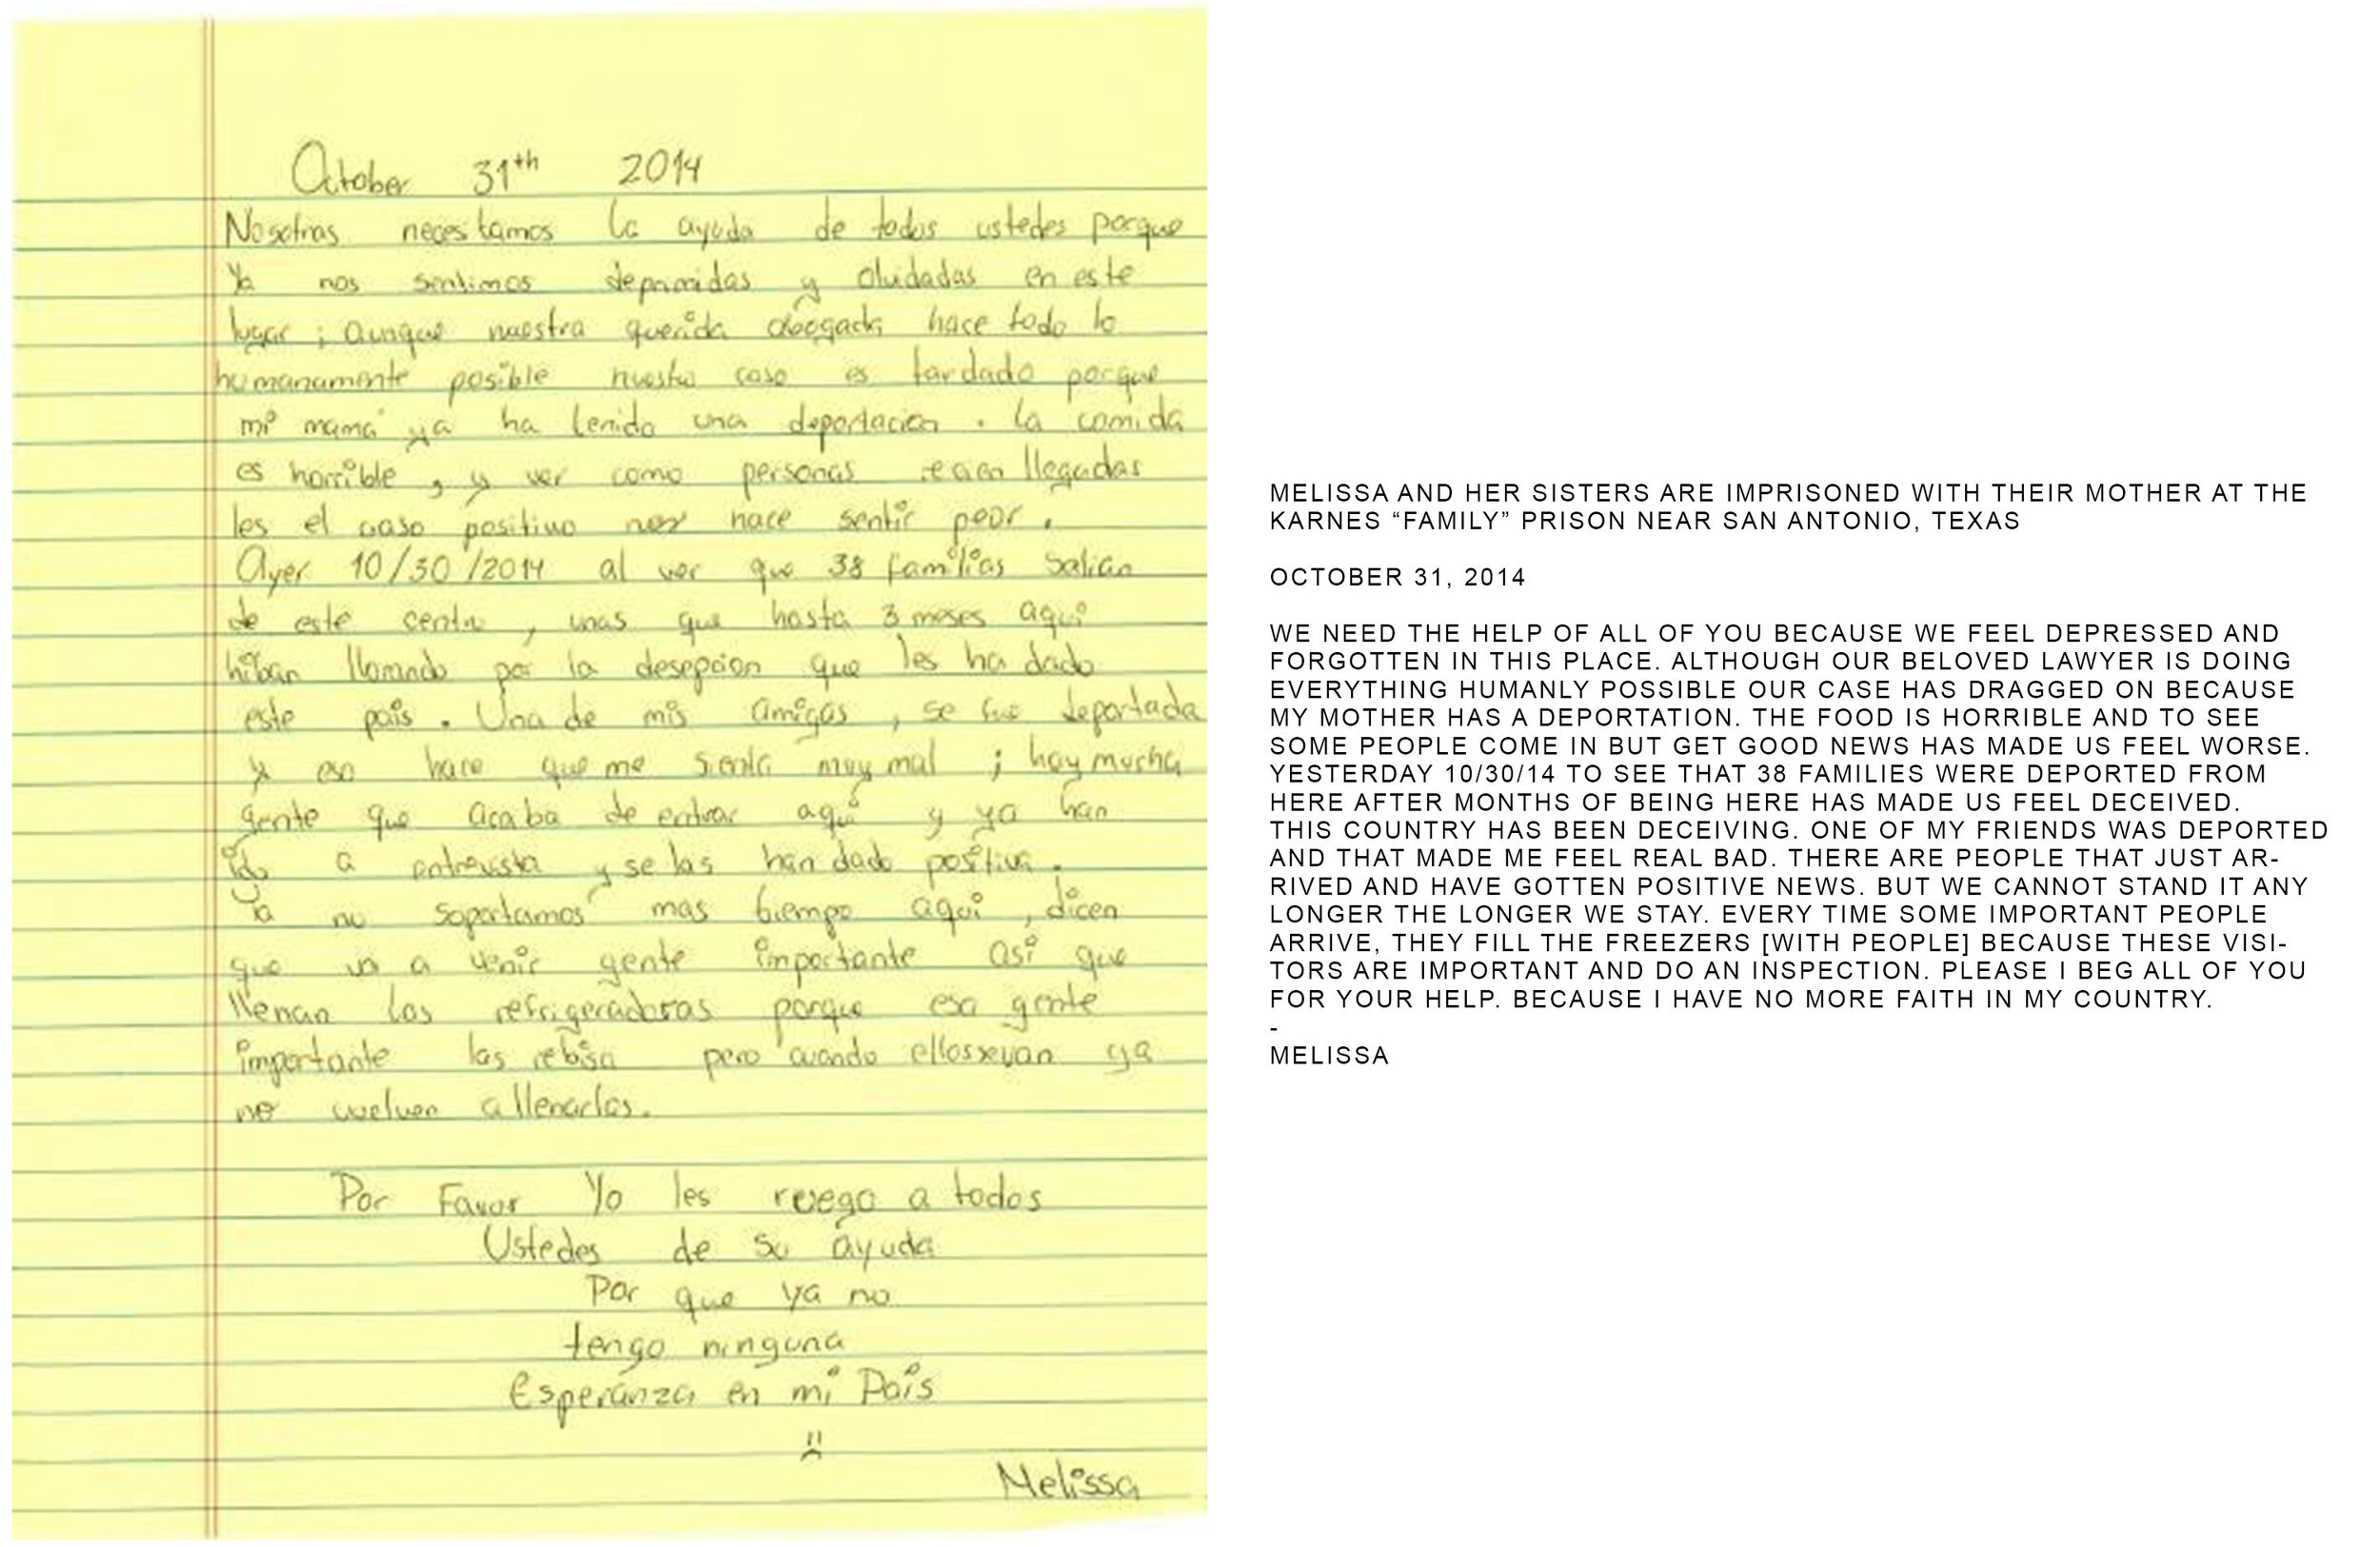 October 31th 2014
Nosotras necesitamos la ayuda de todos ustedes porque
Ya nos sentimos deprimidas y olvidadas en este
lugar ; aunque nuestra querida abogada hace todo lo
humanamente posible nuestro caso es tardado porque
mi mamá ya ha tenido una deportacion . la comida
es horrible , y ver como personas recien llegadas
les el caso positivo nos hace sentir peor .
Ayer 10/30/2014 al ver que 38 familias salian
de este centro , unas que hasta 3 meses aqui
hiban llorando por la desepcion que les ha dado
este pais . Una de mis amigas , se fue deportada
y eso hace que me sienta muy mal ; hay mucha
gente que acaba de entrar aqui y ya han
ido a entrevista y se las han dado positiva .
Ya no soportamos mas tiempo aqui , dicen
que va a venir gente importante asi que
llenan las refrigeradoras porque esa gente
importante las rebisa pero cuando ellos se van ya
no vuelven a llenarlas.
Por Favor Yo les ruego a todos
Ustedes de su ayuda
Por que ya no
tengo ninguna
Esperanza en mi Pais
Melissa
MELISSA AND HER SISTERS ARE IMPRISONED WITH THEIR MOTHER AT THE
KARNES “FAMILY” PRISON NEAR SAN ANTONIO, TEXAS
OCTOBER 31, 2014
WE NEED THE HELP OF ALL OF YOU BECAUSE WE FEEL DEPRESSED AND
FORGOTTEN IN THIS PLACE. ALTHOUGH OUR BELOVED LAWYER IS DOING
EVERYTHING HUMANLY POSSIBLE OUR CASE HAS DRAGGED ON BECAUSE
MY MOTHER HAS A DEPORTATION. THE FOOD IS HORRIBLE AND TO SEE
SOME PEOPLE COME IN BUT GET GOOD NEWS HAS MADE US FEEL WORSE.
YESTERDAY 10/30/14 TO SEE THAT 38 FAMILIES WERE DEPORTED FROM
HERE AFTER MONTHS OF BEING HERE HAS MADE US FEEL DECEIVED.
THIS COUNTRY HAS BEEN DECEIVING. ONE OF MY FRIENDS WAS DEPORTED
AND THAT MADE ME FEEL REAL BAD. THERE ARE PEOPLE THAT JUST AR-
RIVED AND HAVE GOTTEN POSITIVE NEWS. BUT WE CANNOT STAND IT ANY
LONGER THE LONGER WE STAY. EVERY TIME SOME IMPORTANT PEOPLE
ARRIVE, THEY FILL THE FREEZERS [WITH PEOPLE] BECAUSE THESE VISI-
TORS ARE IMPORTANT AND DO AN INSPECTION. PLEASE I BEG ALL OF YOU
FOR YOUR HELP. BECAUSE I HAVE NO MORE FAITH IN MY COUNTRY.
-
MELISSA